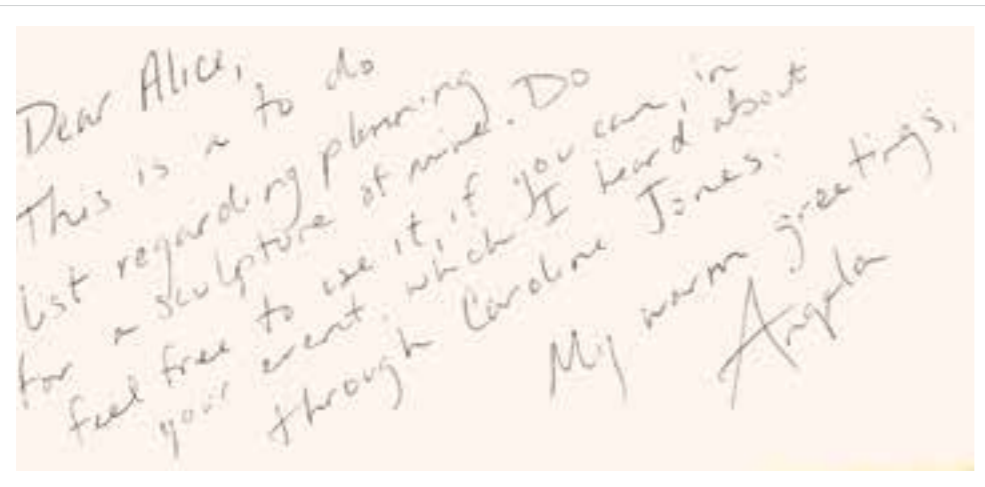 Dear Alice,
This is a to do
list regarding planning
for a sculpture of mine. Do
feel free to use it, if you can, in
your event, which I heard about
through Caroline Jones.
My warm greetings,
Angela